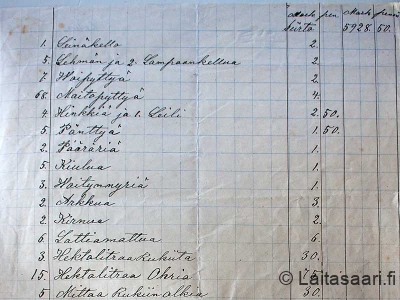 Mark pen Mark penni
Siirto 5928. 50.
1. Seinäkello 2.
5. Lehmän ja 2. Lampaankellua 2.
7. Voipyttyä 2.
68. Maitopyttyä 4.
4 Hinkkiä ja 1. Leili 2. 50.
5 Pänttyä 1. 50.
2. Pääräriä 1.
5. Kiulua 1.
3. Voitynnyriä 1.
2 Arkkua 3.
2 Kirnua 2.
6. Lattiamattua 6.
3. Hektolitraa Rukiita 30.
15. Hektolitraa Ohria 75.
5 Mittaa Rukiin olkia 50.
© Laitasaari.fi